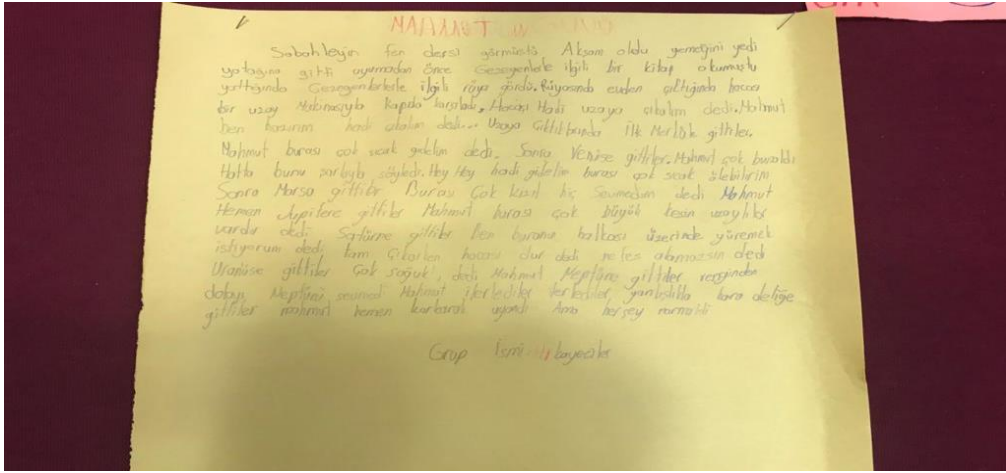 Sabahleyin fen dersi görmüştü. Akşam oldu yemeğini yedi
yatağına gitti uyumadan önce Gezegenlerle ilgili bir kitap okumuştu
yattığında Gezegenlerle ilgili rüya gördü. Rüyasında evden çıktığında hocası
bir uzay Makinasıyla kapıda karşıladı. Hocası Hadi uzaya çıkalım dedi. Mahmut
ben hazırım hadi çıkalım dedi... Uzaya Çıktıklarında İlk Merküre gittiler.
Mahmut burası çok sıcak gidelim dedi. Sonra Venüse gittiler. Mahmut çok bunaldı
Hatta bunu şarkıyla söyledi. Hey Hey hadi gidelim burası çok sıcak ölebilirim
Sonra Marsa gittiler Burası Çok kızıl hiç Sevmedim dedi Mahmut
Hemen Jupitere gittiler Mahmut burası çok büyük kesin uzaylılar
vardır dedi Satürne gittiler Ben buranın halkası üzerinde yürümek
istiyorum dedi tam Çıkarken hocası dur dedi nefes alamazsın dedi
Uranüse gittiler Çok soğuk, dedi Mahmut Neptüne gittiler renginden
dolayı Neptünü sevmedi Mahmut ilerlediler ilerlediler, yanlışlıkla kara deliğe
gittiler mahmut hemen korkarak uyandı Ama herşey normaldi
Grup İsmi